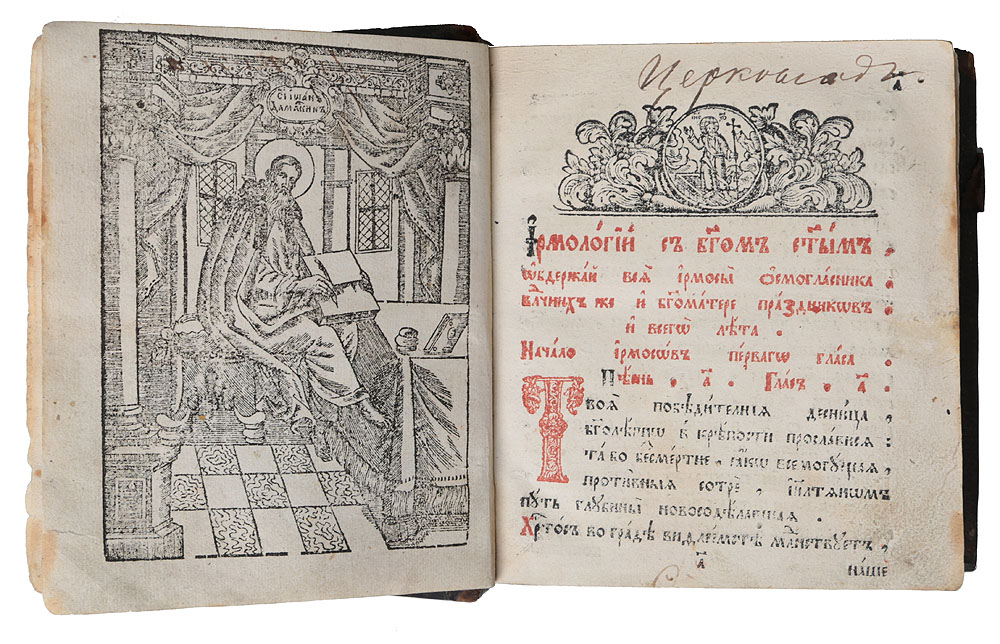 СТ҃Ы ІѠАННЪ
ДАМАСКИНЪ
Церковнад
а҃
Ірмологі́й съ бг҃омъ ст҃ы́мъ ,
ѡ҆бдержа́й всѧ̑ і҆рмосы̀ ѻ҆смогла́сника
вл҃чнихъ же и҆ бг҃ома́тере пра́здникѡвъ
и҆ всегѡ̀ лѣ́та .
Нача́ло і҆рмосѡ́въ пе́рвагѡ гла́са .
Пѣ́снь . а҃ . Гла́съ . а҃
Твоѧ̀ побѣди́телнаѧ десни́ца ,
бг҃олѣ́пнѡ в̾ крѣ́пости просла́висѧ :
та́ бо бесме́ртне , ꙗ҆́кѡ всемогу́щаѧ ,
проти́вныѧ сотрѐ , і҆и҃лтѧнѡмъ
пу́ть глубины̀ новосодѣ́лавшаѧ .
Хр҃то́съ во гра́дѣ виѳлее́мстѣ
а҃
на́ше